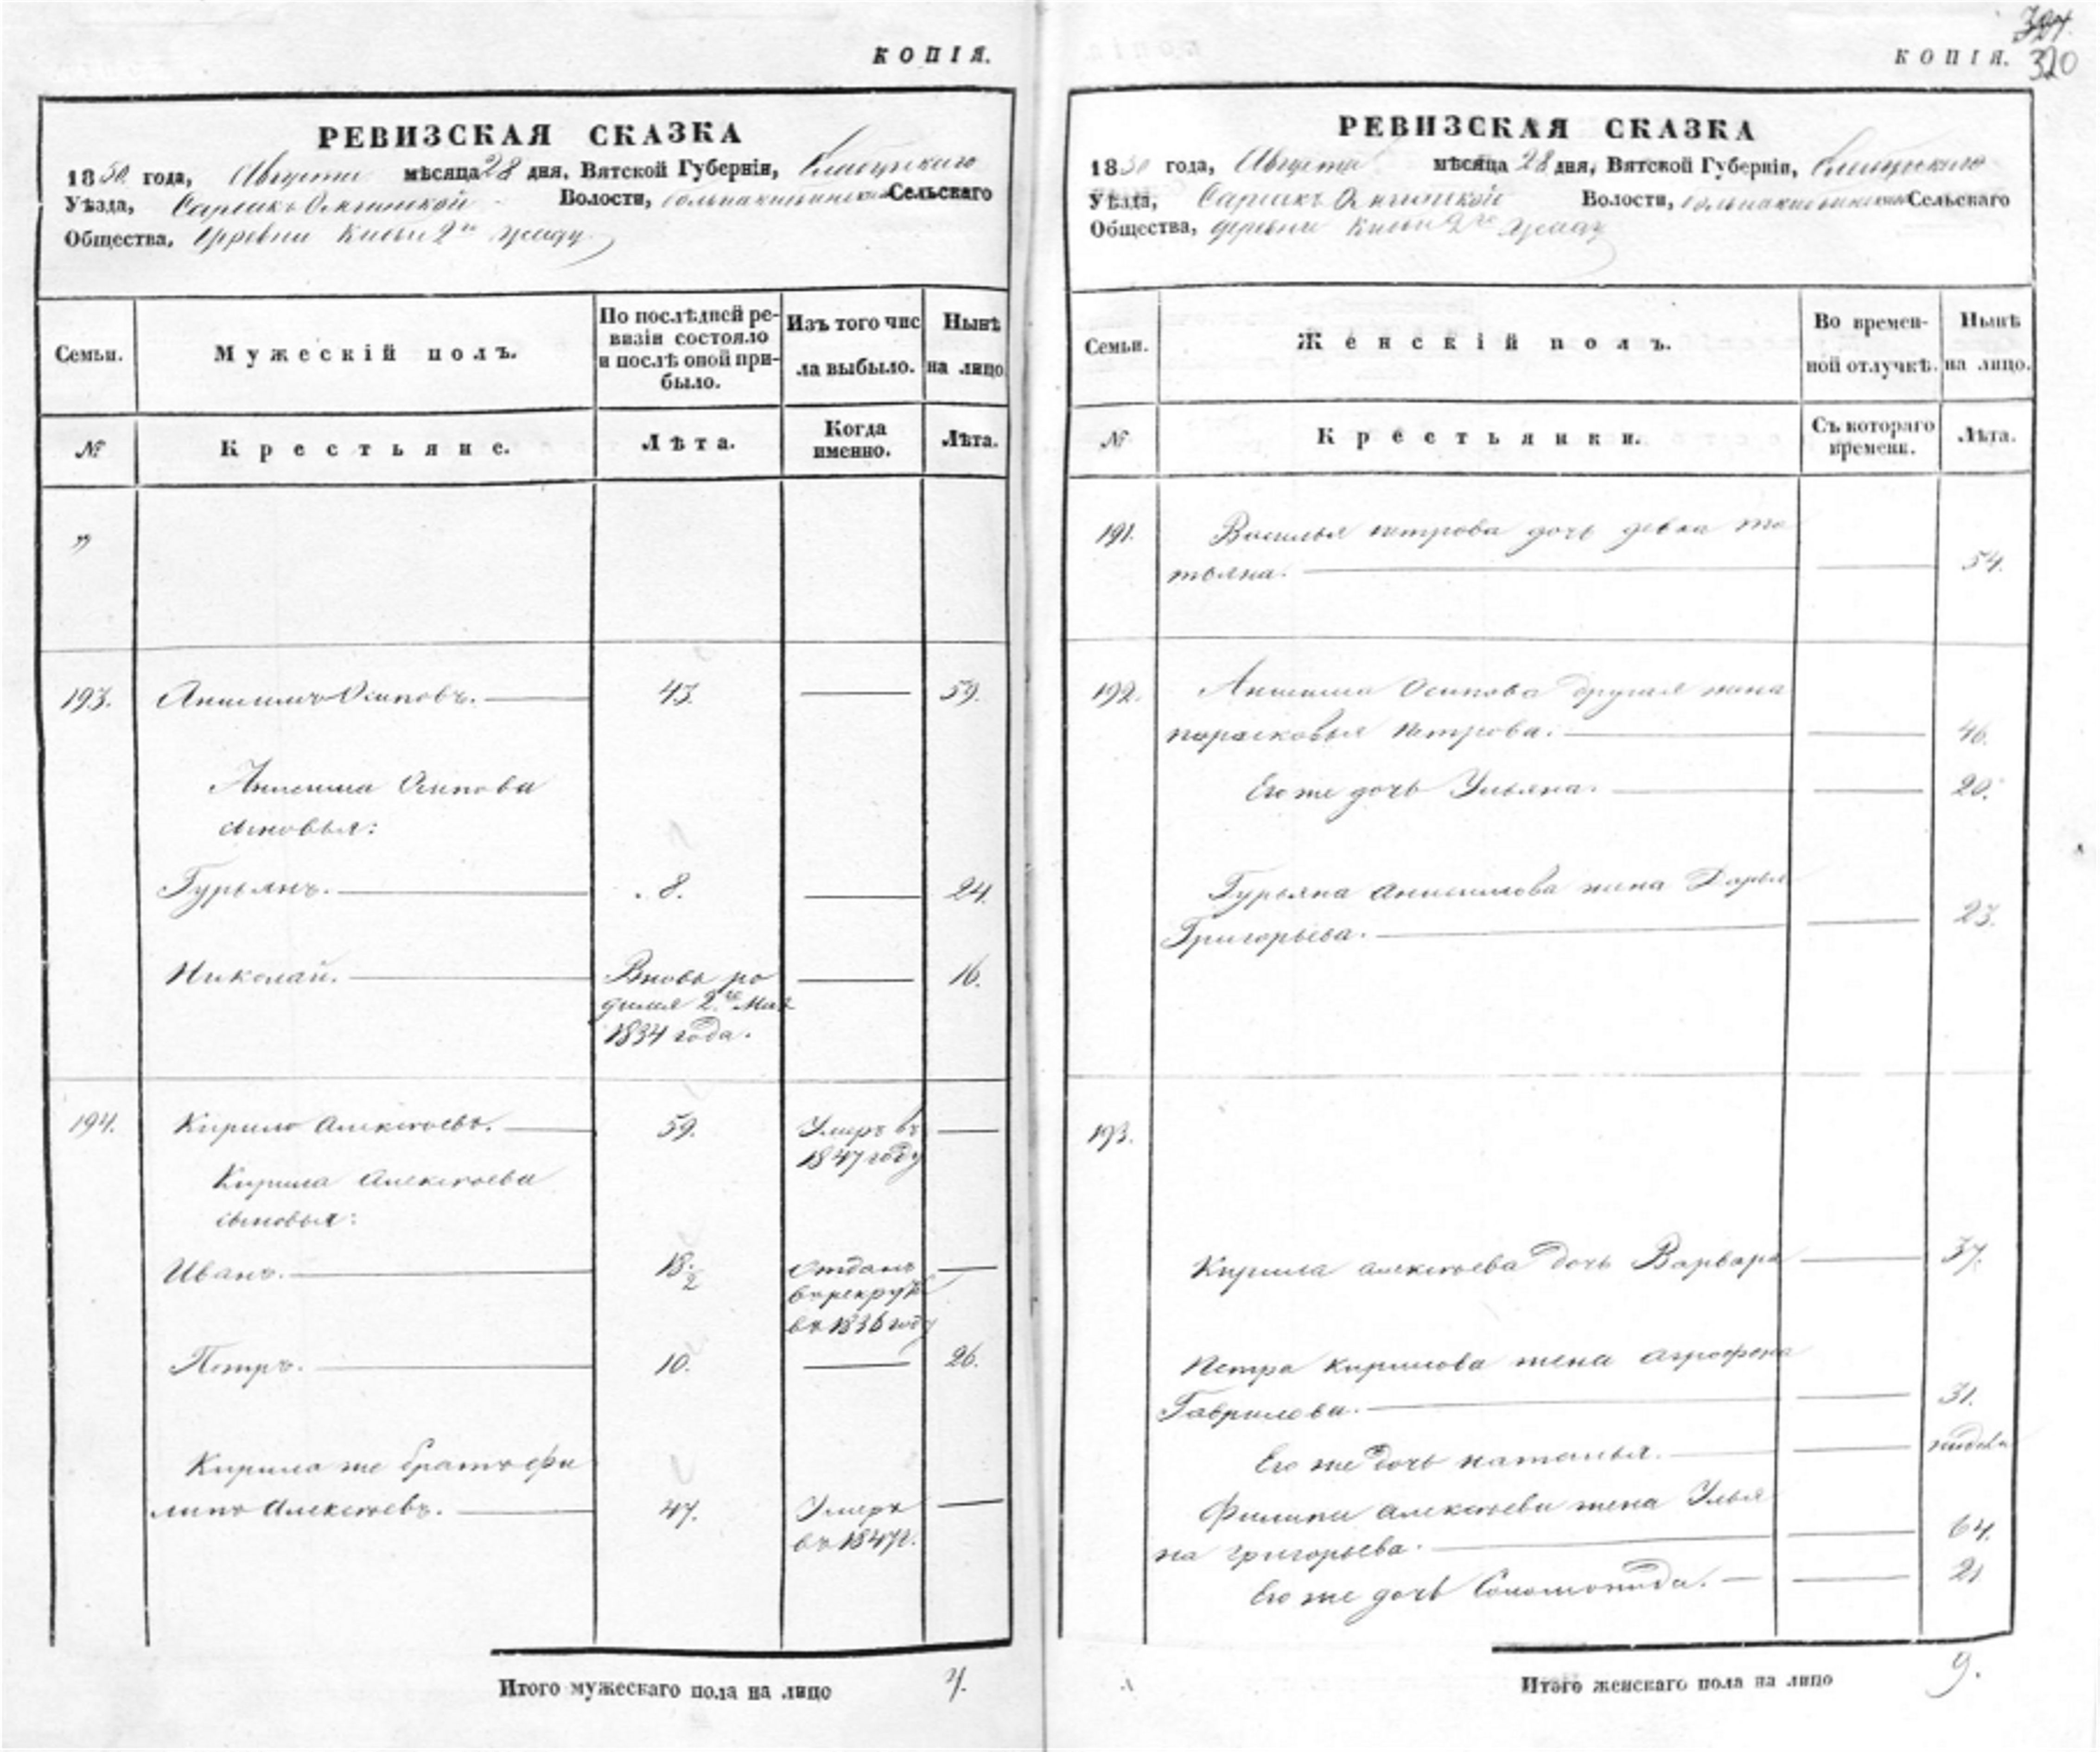 КОПІЯ.
РЕВИЗСКАЯ СКАЗКА
1850 года, Августа мѣсяца 28 дня, Вятской Губерніи,
Уѣзда, Волости, Сельскаго
Общества, деревни 2го
Семьи.
Мужескій полъ.
По послѣдней ре-
визіи состояло
и послѣ оной при-
было.
Изъ того чис
ла выбыло.
Нынѣ
на лицо
№
Крестьяне.
Лѣта.
Когда
именно.
Лѣта.
"
193. Анисимъ Осиповъ. 43. 59.
Анисима Осипова
сыновья:
Гурьянъ. 8. 24.
Николай. Вновь ро 16.
дился 2го Мая
1834 года.
194. Кирило Алексѣевъ. 59. Умеръ въ
1847 году
Кирила Алексѣева
сыновья:
Иванъ. 18. Отданъ
2 въ рекруты
въ 1836 году
Петръ. 10. 26.
Кирила же братъ Фи
липъ Алексѣевъ. 47. Умеръ
въ 1847 г.
Итого мужескаго пола на лицо 4.
КОПІЯ.
320
РЕВИЗСКАЯ СКАЗКА
1850 года, Августа мѣсяца 28 дня, Вятской Губерніи,
Уѣзда, Волости, Сельскаго
Общества, деревни 2го
Семьи.
Женскій полъ.
Во времен-
ной отлучкѣ.
Нынѣ
на лицо.
№
Крестьянки.
Съ котораго
времени.
Лѣта.
191. Василья Петрова дочь девка Та
тьяна. 54.
192. Анисима Осипова другая жена
Парасковья Петрова. 46.
Его же дочь Ульяна. 20.
Гурьяна Анисимова жена Дарья
Григорьева. 23.
193.
Кирила Алексѣева дочь Варвара 37.
Петра Кирилова жена Агрофена
Гаврилова. 31.
Его же дочь Наталья.
Филипа Алексѣева жена Улья
на Григорьева. 64.
Его же дочь Соломонида. 21
Итого женскаго пола на лицо 9.